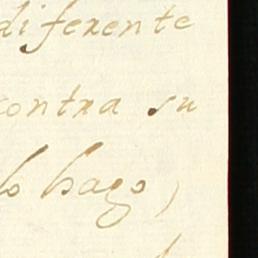 diferente
contra su
lo hago,